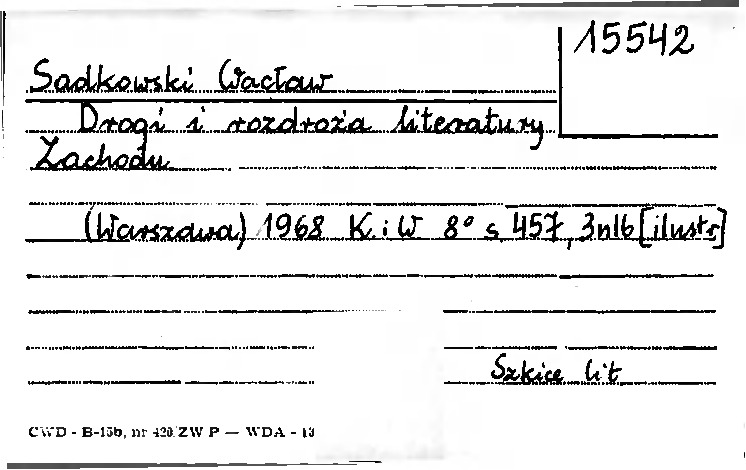 15542
Sadkowski Wacław
Drogi i rozdroża literatury
Zachodu
(Warszawa) 1968 K. i W 8° s. 457, 3nlb [ilustr]
Szkice lit
CWD - B-15b, nr 420/ZW P — WDA - 13